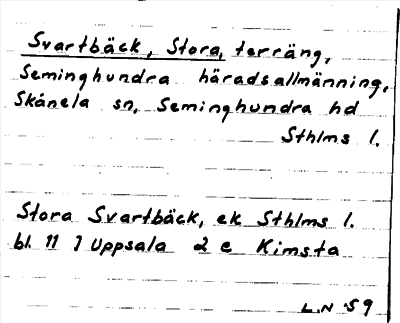 Svartbäck, Stora, terräng,
Seminghundra häradsallmänning,
Skånela sn, Seminghundra hd
Sthlms l.
Stora Svartbäck, ek Sthlms l.
bl. 11 1 Uppsala 2 e Kimsta
L.N -59